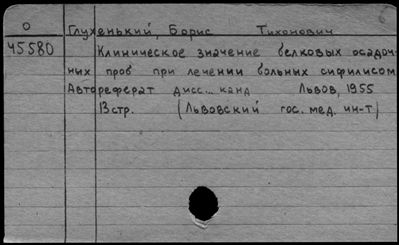 О Глухенький, Борис Тихонович
45580 Клиническое значение белковых осадоч-
ных проб при лечении больных сифилисом
Автореферат дисс... канд Львов, 1955
13 стр. (Львовский гос. мед. ин-т)